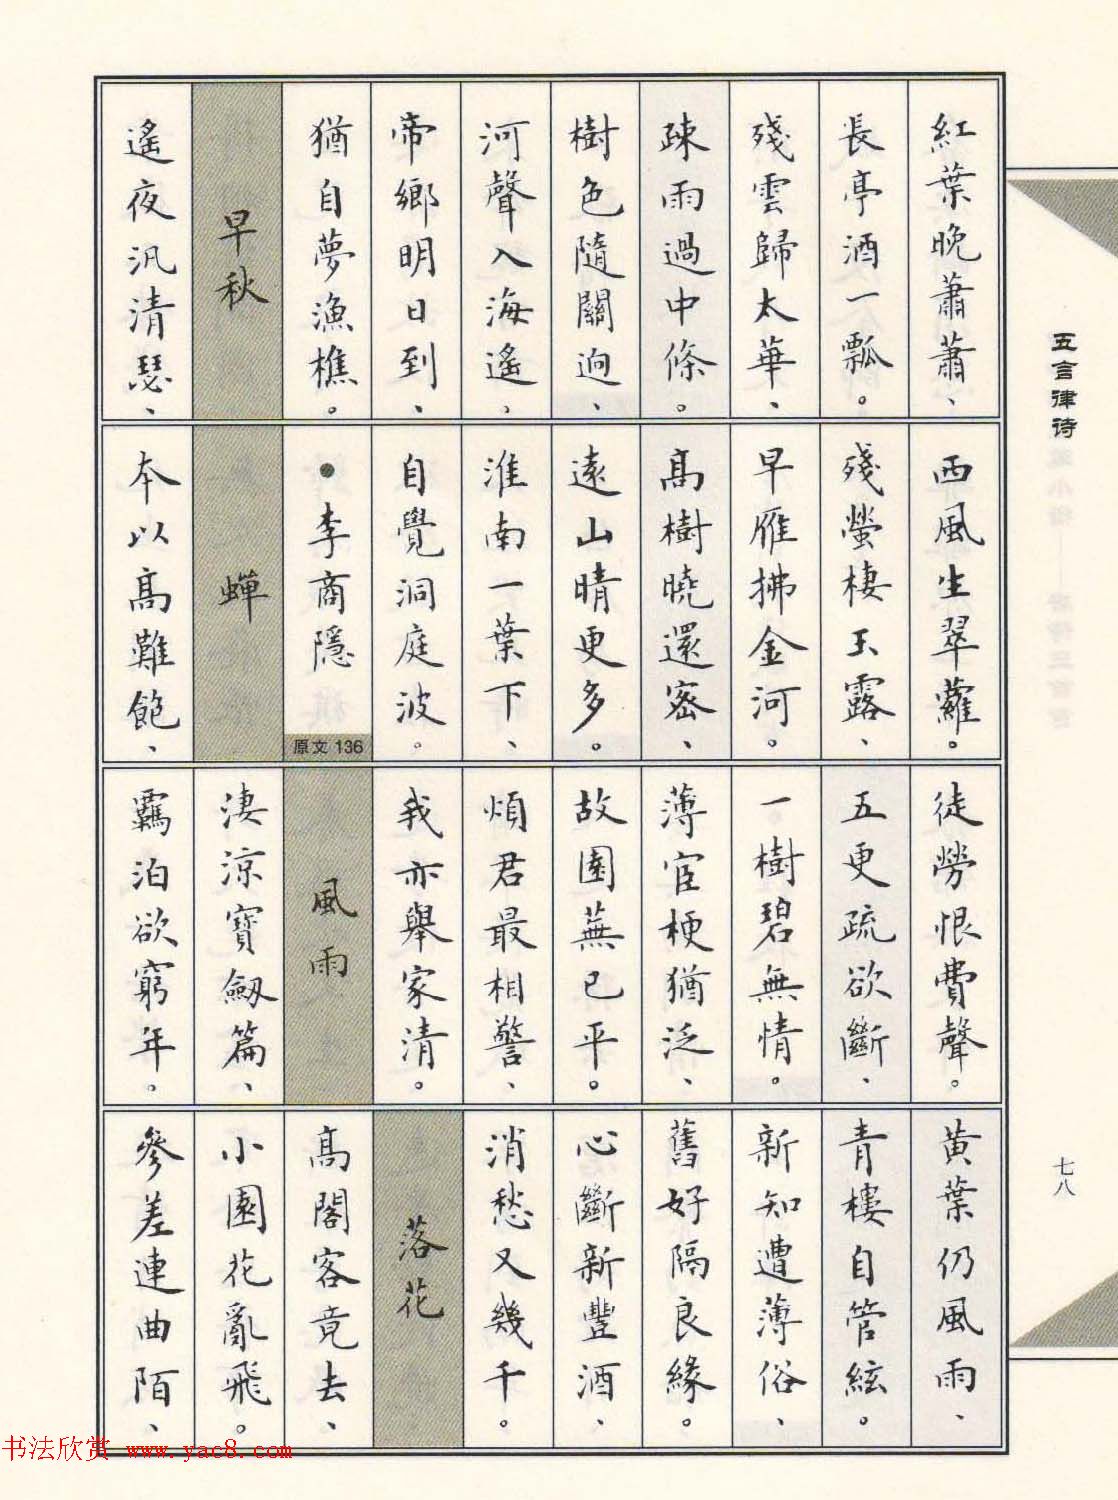 五言律诗
紅葉晚蕭蕭、
長亭酒一瓢。
殘雲歸太華、
疎雨過中條。
樹色隨關迥、
河聲入海遙。
帝鄉明日到、
猶自夢漁樵。
早秋
遙夜汎清瑟、
西風生翠蘿。
殘螢棲玉露、
早雁拂金河。
高樹曉還密、
遠山晴更多。
淮南一葉下、
自覺洞庭波。
●李商隱
原文 136
蟬
本以高難飽、
徒勞恨費聲。
五更疏欲斷、
一樹碧無情。
薄宦梗猶泛、
故園蕪已平。
煩君最相警、
我亦舉家清。
風雨
淒涼寶劒篇、
羈泊欲窮年。
黃葉仍風雨、
青樓自管絃。
新知遭薄俗、
舊好隔良緣。
心斷新豐酒、
消愁又幾千。
落花
高閣客竟去、
小園花亂飛。
參差連曲陌、
七八
书法欣赏 www.yac8.com